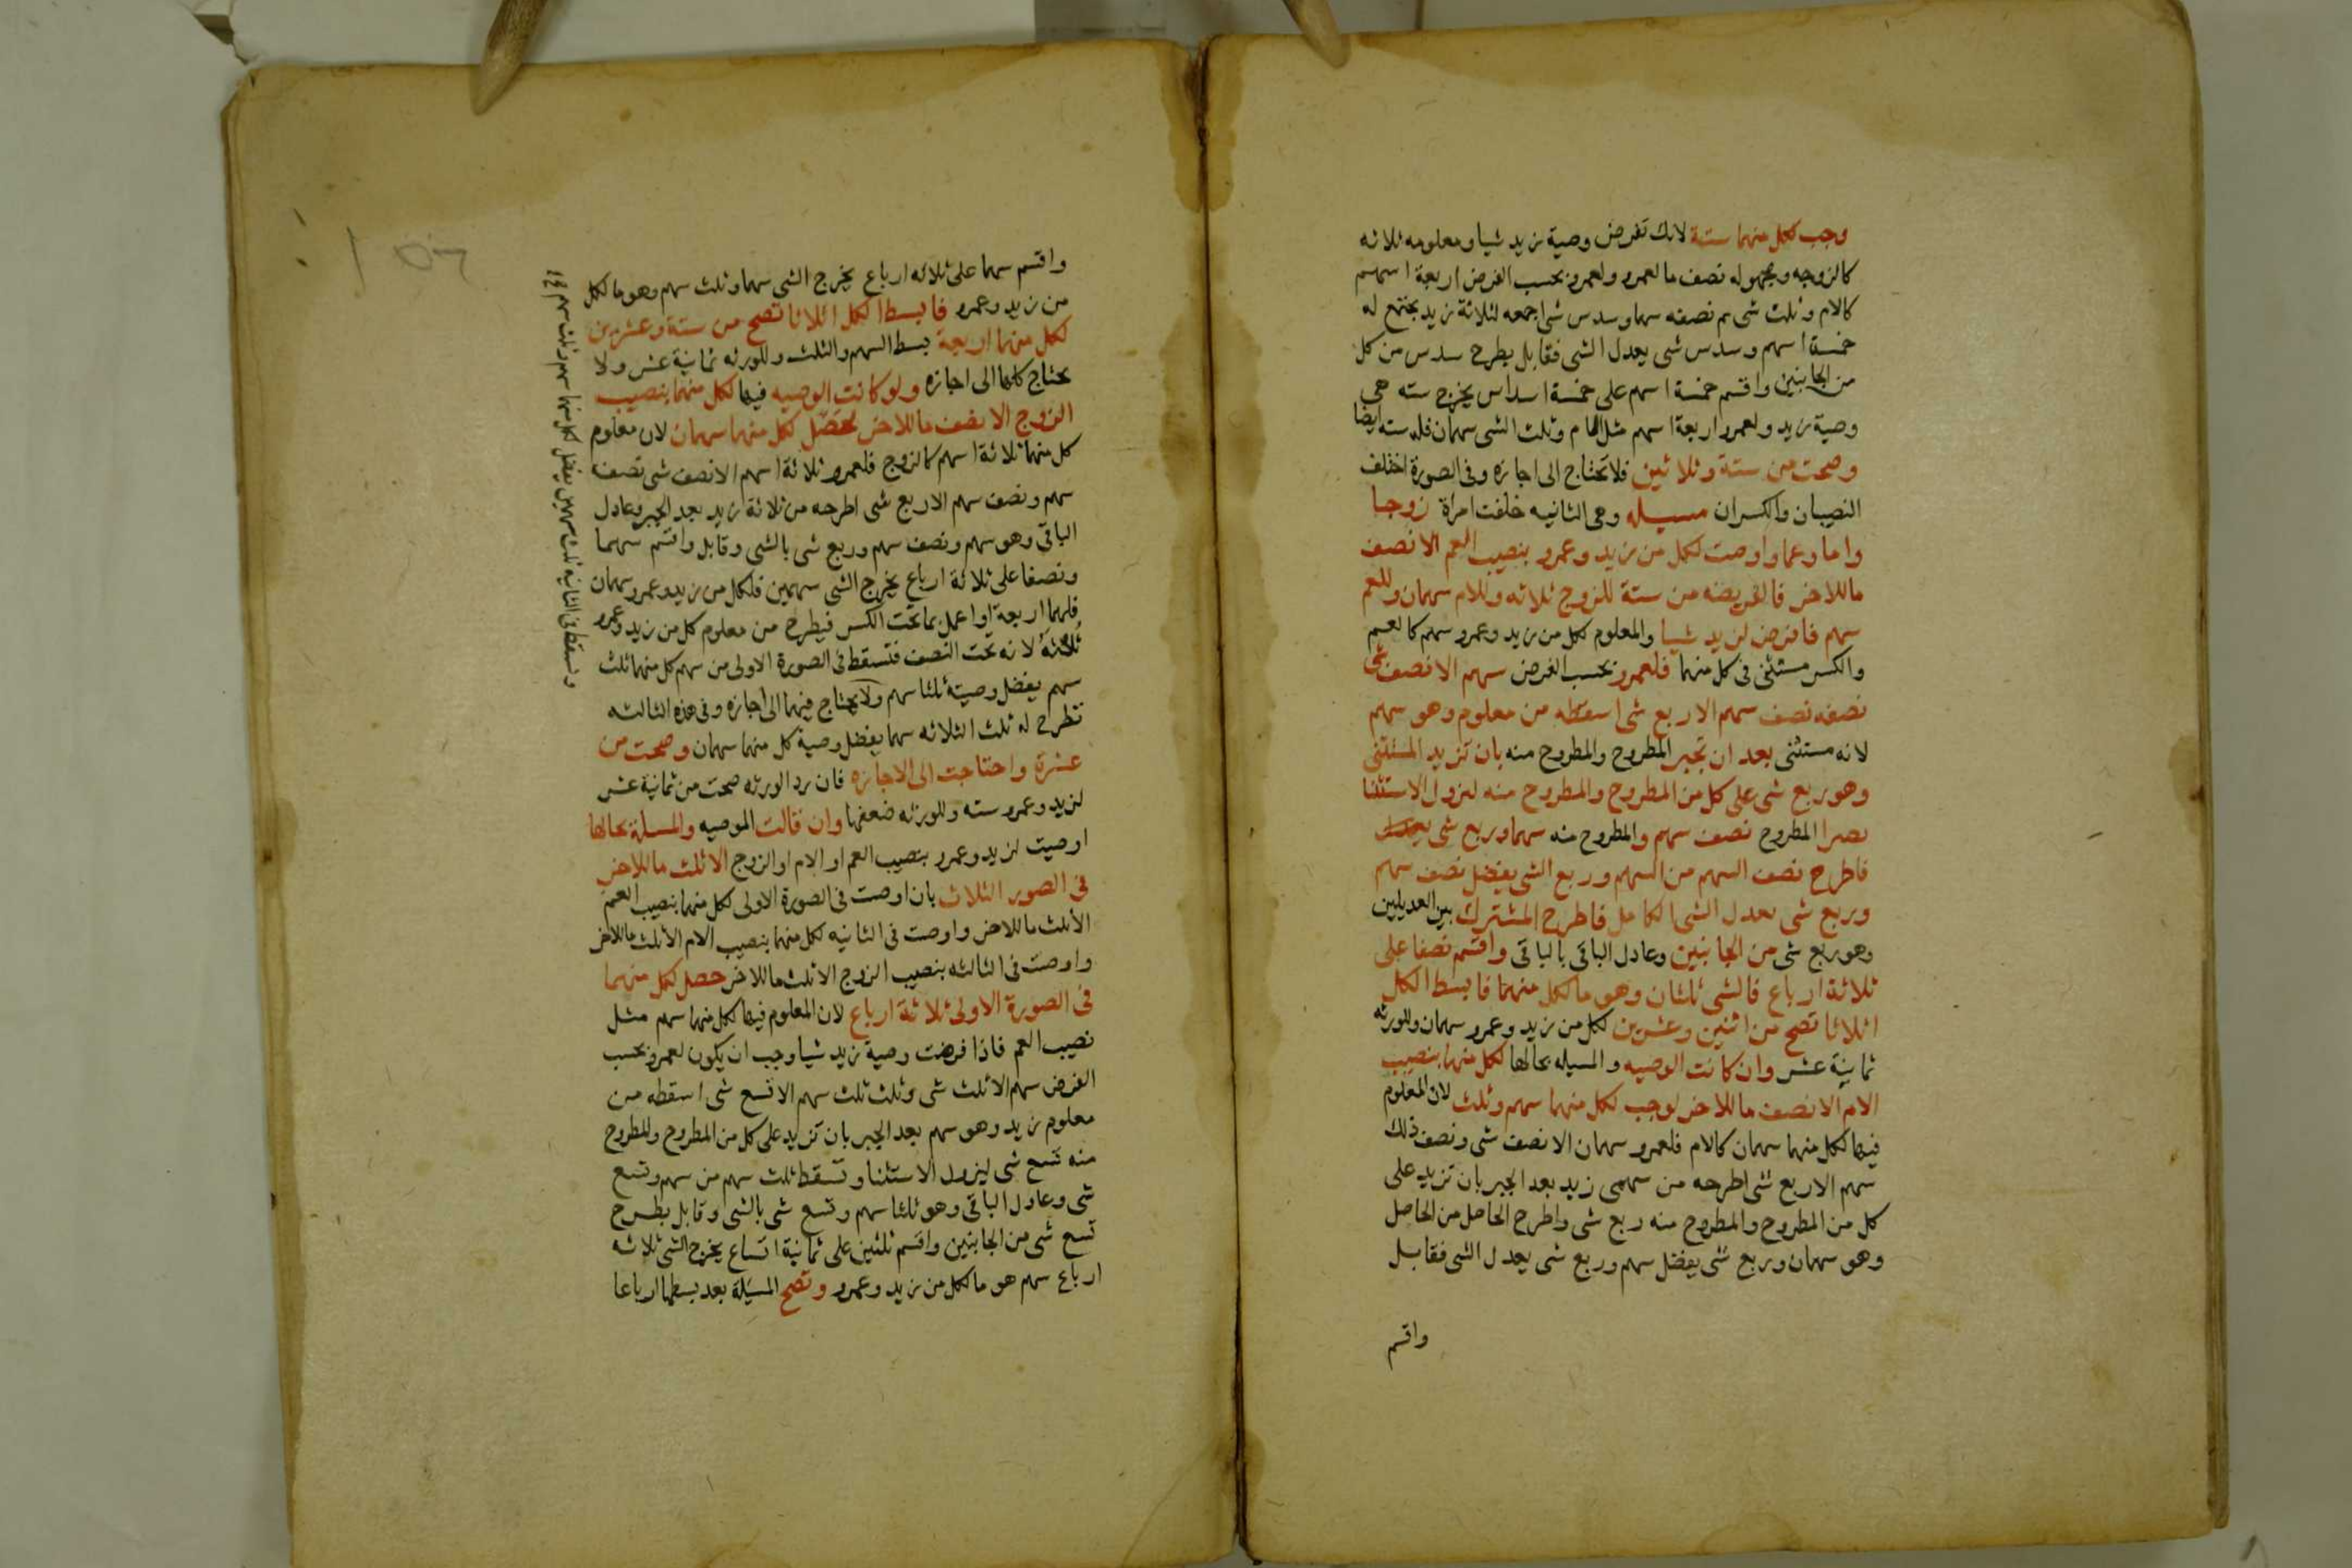 وجب لكل منهما ستة لانك تفرض وصية زيد شيا ومعلومه ثلاثه
كالزوجه ومجهوله نصف ما لعمرو ولعمرو بحسب الفرض اربعة اسهم
كالام وثلث شى نصفه سهما وسدس شى اجمعه لثلاثة زيد يجتمع له
خمسة اسهم وسدس شى يعدل الشى فقابل بطرح سدس من كل
من الجانبين واقسم خمسة اسهم على خمسة اسداس يخرج سته هى
وصية زيد ولعمرو اربعة اسهم مثل الام وثلث الشى سهمان فله سته ايضا
وصحت من ستة وثلاثين فلا تحتاج الى اجازه وفى الصورة اختلف
النصيبان والكسران مسيله وهى الثانيه خلفت امراة زوجا
واما وعما واوصت لكل من زيد وعمرو بنصيب العم الا نصف
ما للاخر فالفريضه من ستة للزوج ثلاثه وللام سهمان وللعم
سهم فافرض لزيد شيا والمعلوم لكل من زيد وعمرو سهم كالعم
والكسر مستثنى فى كل منهما فلعمرو بحسب الفرض سهم الا نصف شى
نصفه نصف سهم الا ربع شى اسقطه من معلوم وهو سهم
لانه مستثنى بعد ان تجبر المطروح والمطروح منه بان تزيد المستثنى
وهو ربع شى على كل من المطروح والمطروح منه ليزول الاستثنا
يصير المطروح نصف سهم والمطروح منه سهما وربع شى
فاطرح نصف السهم من السهم وربع الشى يفضل نصف سهم
وربع شى يعدل الشى الكامل فاطرح المشترك بين العديلين
وهو ربع شى من الجانبين وعادل الباقى بالباقى واقسم نصفا على
ثلاثة ارباع فالشى ثلثان وهو ما لكل منهما فابسط الكل
اثلاثا تصح من اثنين وعشرين لكل من زيد وعمرو سهمان وللورثه
ثمانية عشر وان كانت الوصيه والمسيله بحالها لكل منهما بنصيب
الام الا نصف ما للاخر لوجب لكل منهما سهم وثلث لان المعلوم
فيها لكل منهما سهمان كالام فلعمرو سهمان الا نصف شى ونصف ذلك
سهم الا ربع شى اطرحه من سهمى زيد بعد الجبر بان تزيد على
كل من المطروح والمطروح منه ربع شى واطرح الحاصل من الحاصل
وهو سهمان وربع شى يفضل سهم وربع شى يعدل الشى فقابل
واقسم
واقسم سهما على ثلاثه ارباع يخرج الشى سهما وثلث سهم وهو ما لكل
من زيد وعمرو فابسط الكل اثلاثا تصح من ستة وعشرين
لكل منهما اربعة بسط السهم والثلث وللورثه ثمانية عشر ولا
يحتاج كلها الى اجازه ولو كانت الوصيه فيها لكل منهما بنصيب
الزوج الا نصف ما للاخر لحصل لكل منهما سهمان لان معلوم
كل منهما ثلاثة اسهم كالزوج فلعمرو ثلاثة اسهم الا نصف شى نصف
سهم ونصف سهم الا ربع شى اطرحه من ثلاثة زيد بعد الجبر وعادل
الباقى وهو سهم ونصف سهم وربع شى بالشى وقابل واقسم سهما
ونصفا على ثلاثة ارباع يخرج الشى سهمين فلكل من زيد وعمرو سهمان
فلهما اربعة او اعمل بما تحت الكسر فيطرح من معلوم كل من زيد وعمرو
ثلثه لانه تحت النصف فتسقط فى الصورة الاولى من سهم كل منهما ثلث
سهم يفضل وصيته ثلثا سهم ولا يحتاج فيهما الى اجازه وفى هذه الثالثه
تطرح له ثلث الثلاثه سهما يفضل وصية كل منهما سهمان وصحت من
عشرة واحتاجت الى الاجازه فان رد الورثه صحت من ثمانية عشر
لزيد وعمرو سته وللورثه ضعفها وان قالت الموصيه والمسلة بحالها
اوصيت لزيد وعمرو بنصيب العم او الام او الزوج الا ثلث ما للاخر
فى الصور الثلاث بان اوصت فى الصورة الاولى لكل منهما بنصيب العم
الا ثلث ما للاخر واوصت فى الثانيه لكل منهما بنصيب الام الا ثلث ما للاخر
واوصت فى الثالثه بنصيب الزوج الا ثلث ما للاخر حصل لكل منهما
فى الصورة الاولى ثلاثة ارباع لان المعلوم فيها لكل منهما سهم مثل
نصيب العم فاذا فرضت وصية زيد شيا وجب ان يكون لعمرو بحسب
الفرض سهم الا ثلث شى وثلث ثلث سهم الا تسع شى اسقطه من
معلوم زيد وهو سهم بعد الجبر بان تزيد على كل من المطروح والمطروح
منه تسع شى ليزول الاستثنا وتسقط ثلث سهم من سهم وتسع
شى وعادل الباقى وهو ثلثا سهم وتسع شى بالشى وقابل بطرح
تسع شى من الجانبين واقسم ثلثين على ثمانية اتساع يخرج الشى ثلاثه
ارباع سهم هو ما لكل من زيد وعمرو وتصح المسيلة بعد بسطها ارباعا
وتسقط فى الثانيه ثلث سهمين يفضل لكل منهما سهم وثلث سهم صح